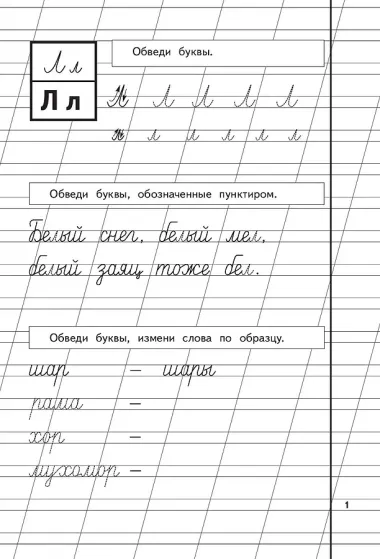 Л л
Обведи буквы.
Л л
Л Л Л Л Л
л л л л л л
Обведи буквы, обозначенные пунктиром.
Белый снег, белый мел,
белый заяц тоже бел.
Обведи буквы, измени слова по образцу.
шар — шары
рама —
хор —
мухомор —
1